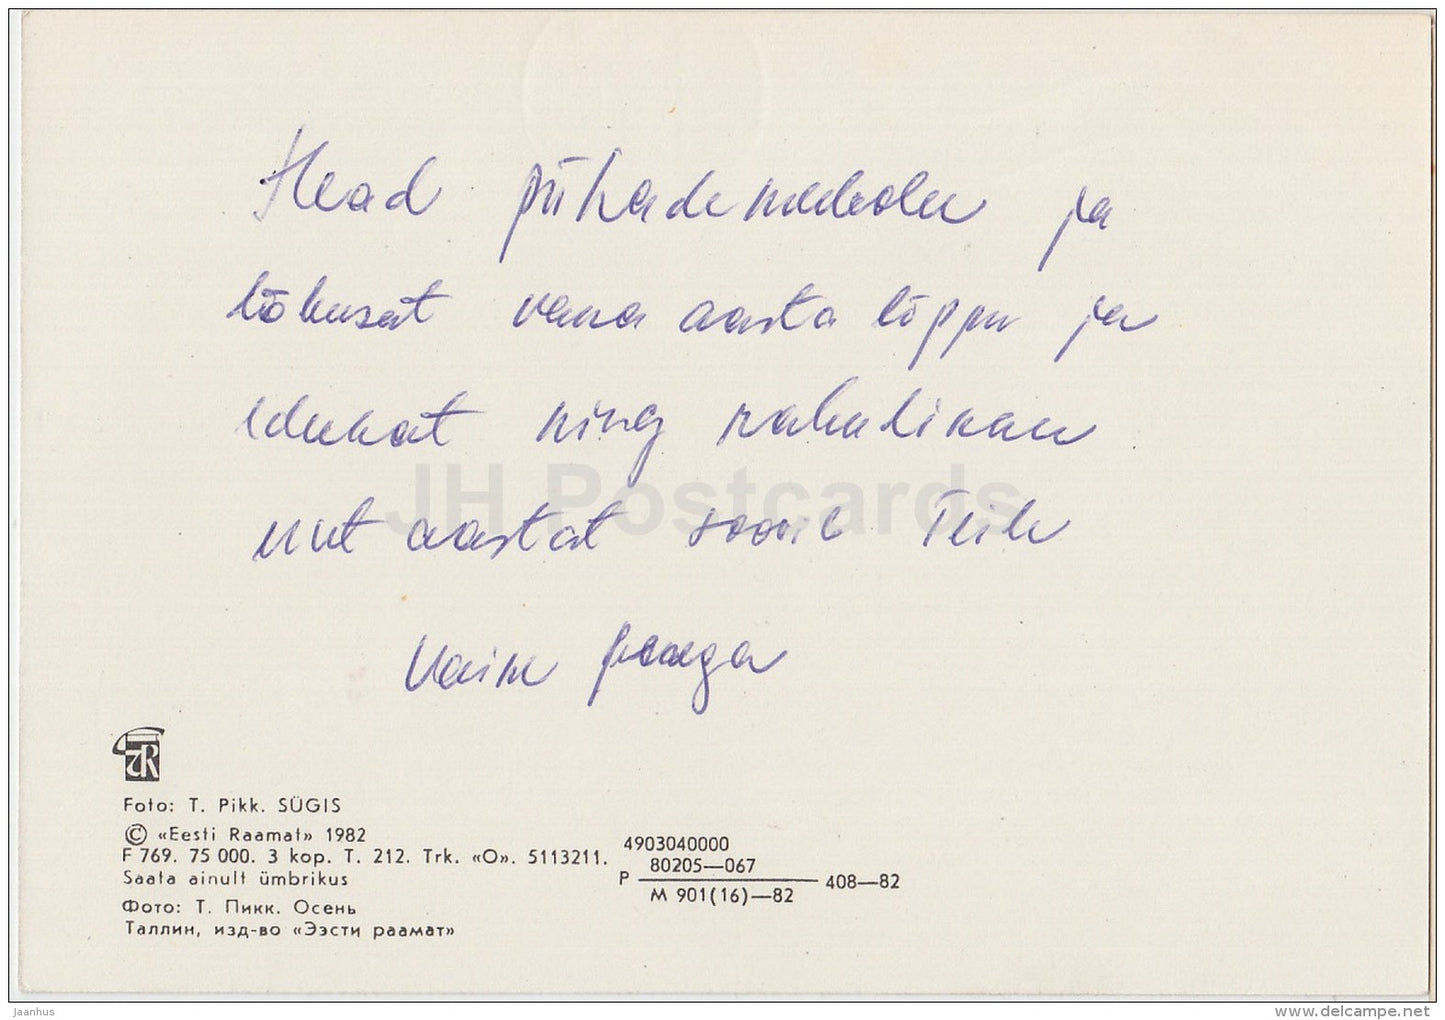 Head pühademeeleolu ja
lõbusat vana aasta lõppu ja
edukat ning rahulikku
uut aastat soovib Teile
JH Postcards
Foto: T. Pikk. SÜGIS
© «Eesti Raamat» 1982
F 769. 75 000. 3 kop. T. 212. Trk. «O». 5113211.
Saata ainult ümbrikus
Фото: Т. Пикк. Осень
Таллин, изд-во «Ээсти раамат»
4903040000
80205—067
Р 408—82
М 901(16)—82
jaanhus
www.delcampe.net